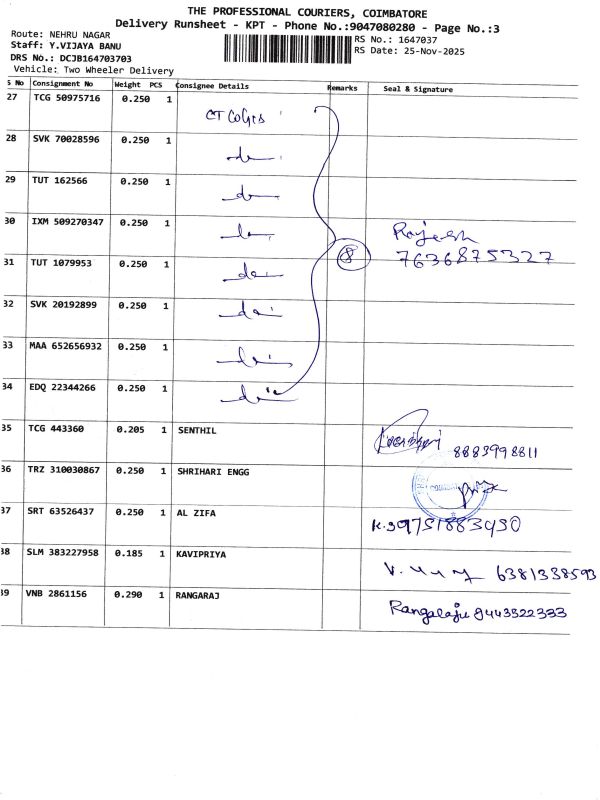 THE PROFESSIONAL COURIERS, COIMBATORE
Delivery Runsheet - KPT - Phone No.:9047080280 - Page No.:3
Route: NEHRU NAGAR
Staff: Y.VIJAYA BANU
DRS No.: DCJB164703703
Vehicle: Two Wheeler Delivery
RS No.: 1647037
RS Date: 25-Nov-2025
S No Consignment No Weight PCS Consignee Details Remarks Seal & Signature
27 TCG 50975716 0.250 1
28 SVK 70028596 0.250 1
29 TUT 162566 0.250 1
30 IXM 509270347 0.250 1 Rajesh
31 TUT 1079953 0.250 1 8 7636875327
32 SVK 20192899 0.250 1
33 MAA 652656932 0.250 1
34 EDQ 22344266 0.250 1
35 TCG 443360 0.205 1 SENTHIL 8883998811
36 TRZ 310030867 0.250 1 SHRIHARI ENGG
37 SRT 63526437 0.250 1 AL ZIFA 9751883450
38 SLM 383227958 0.185 1 KAVIPRIYA 6381338593
39 VNB 2861156 0.290 1 RANGARAJ Rangaraju 9443322333